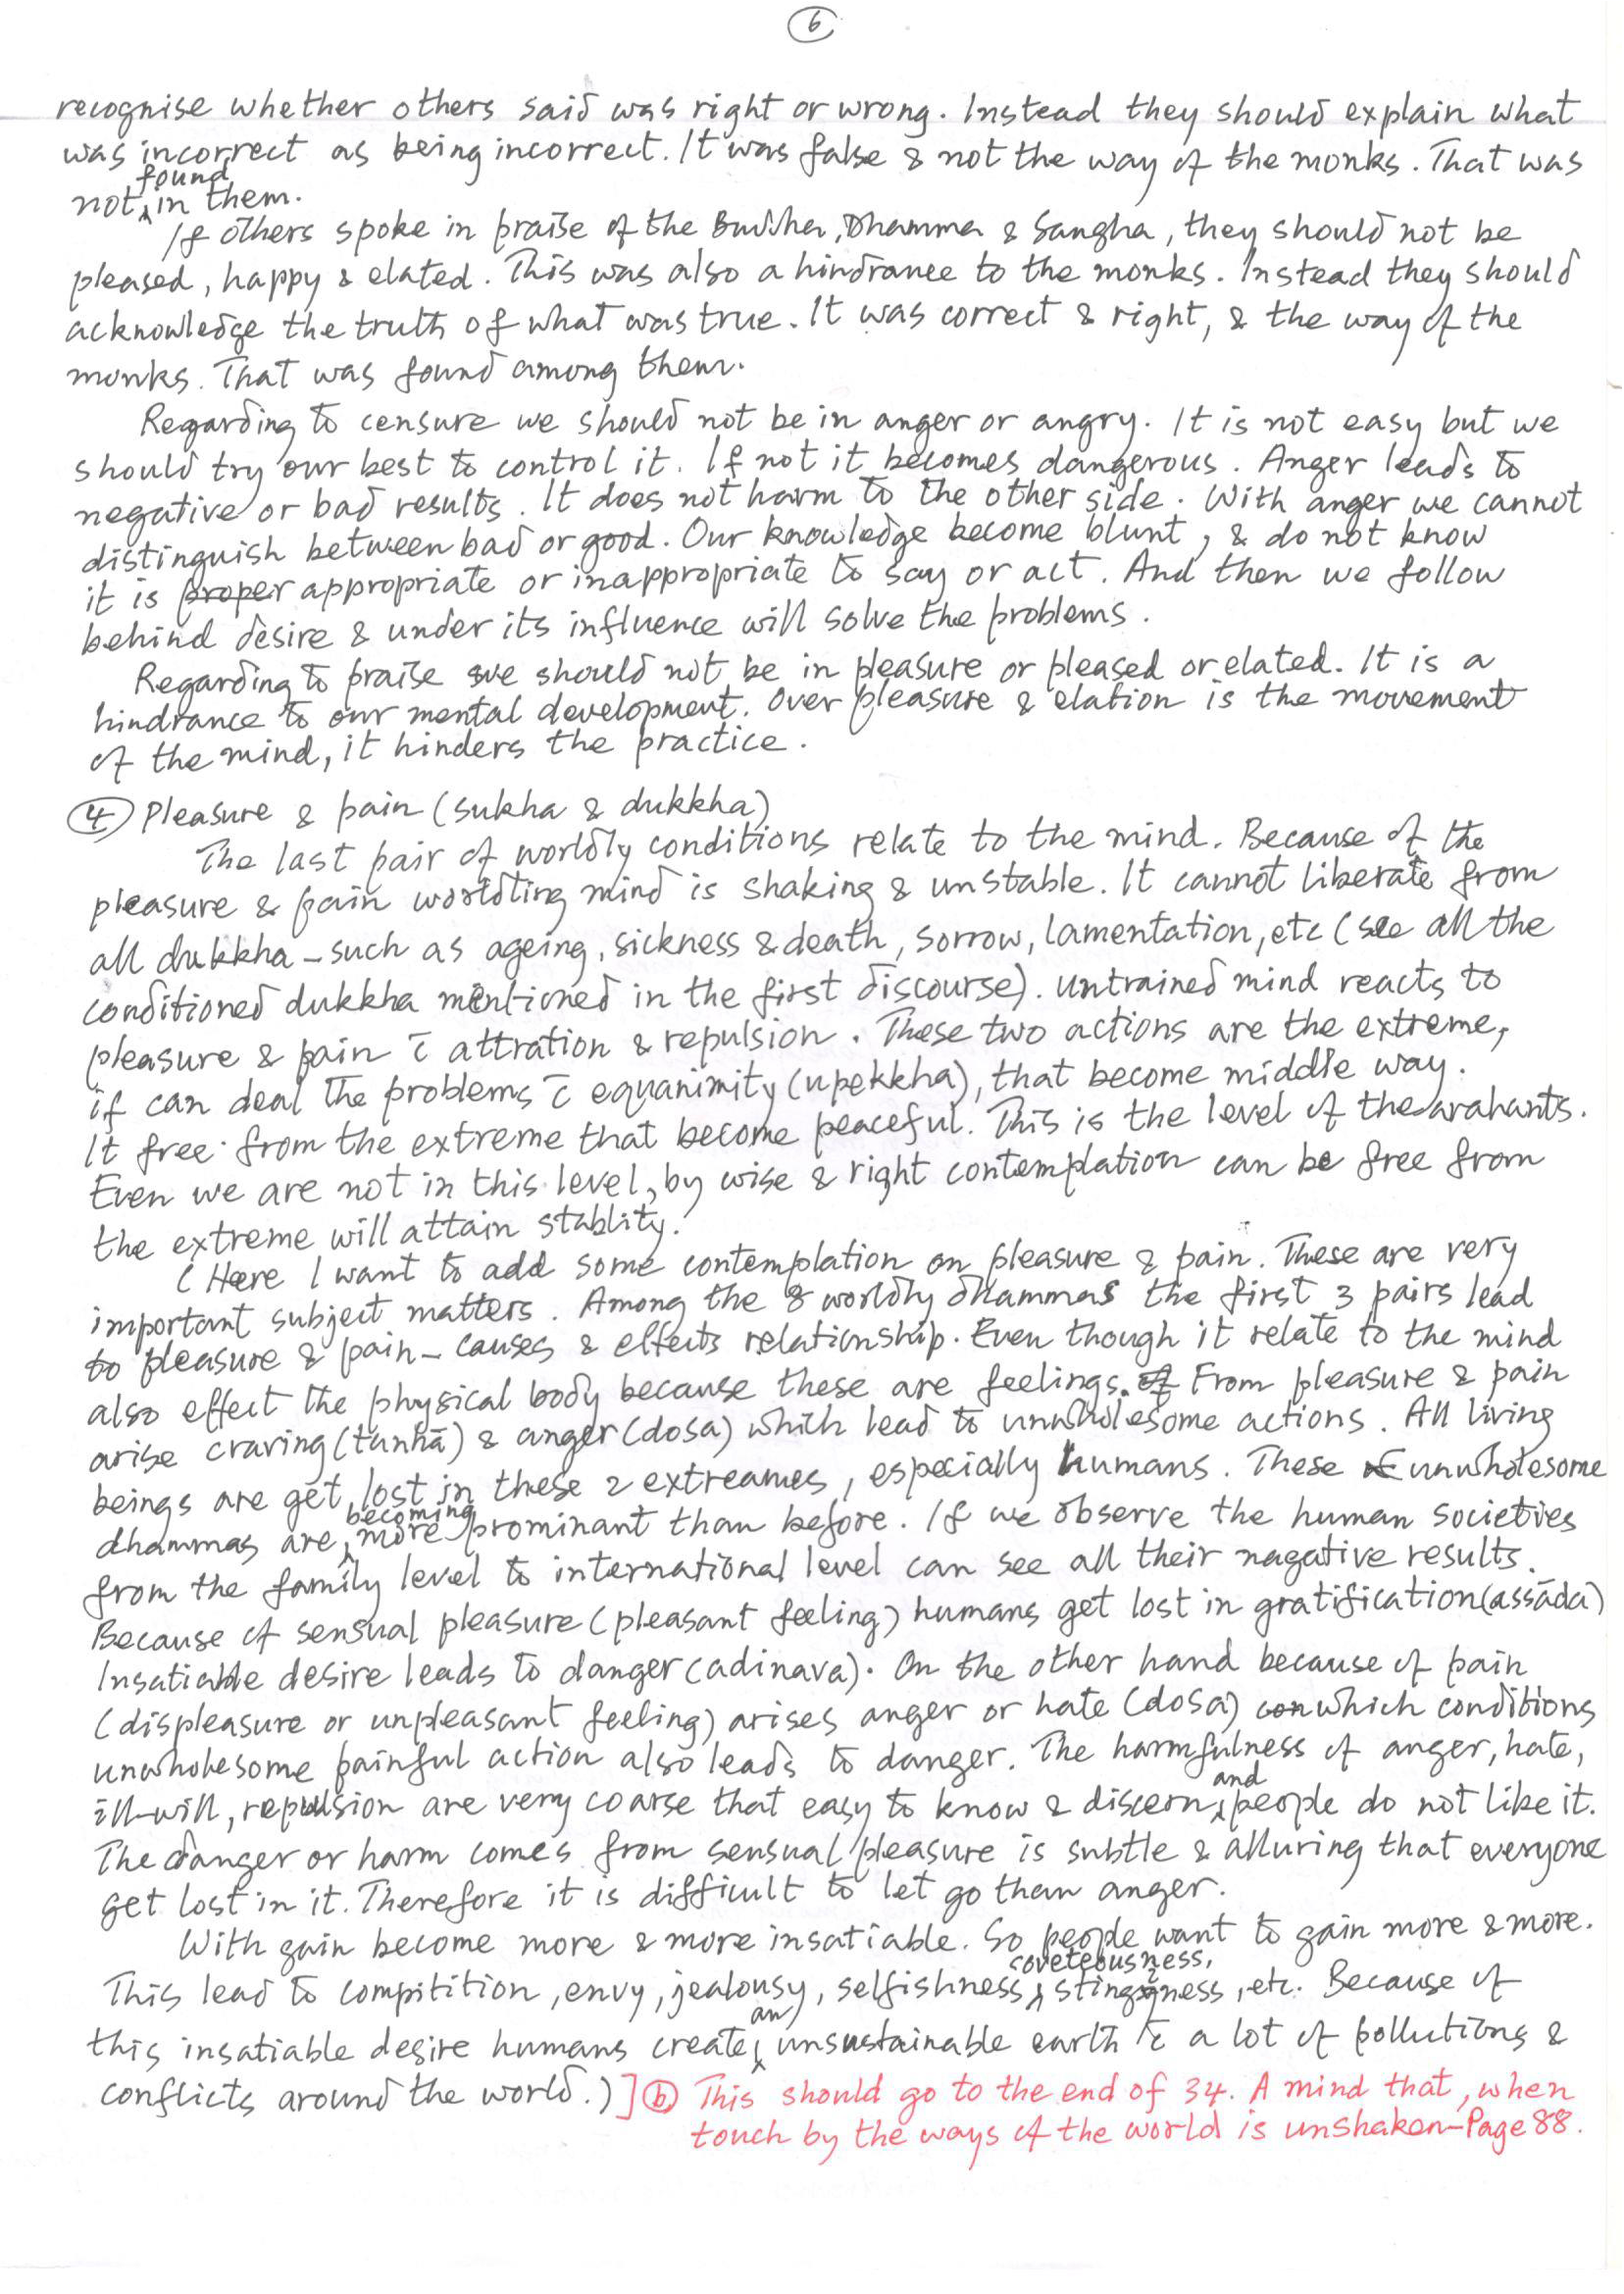 6
recognise whether others said was right or wrong. Instead they should explain what
was incorrect as being incorrect. It was false & not the way of the monks. That was
not found in them.
If others spoke in praise of the Buddha, Dhamma & Sangha, they should not be
pleased, happy & elated. This was also a hindrance to the monks. Instead they should
acknowledge the truth of what was true. It was correct & right, & the way of the
monks. That was found among them.
Regarding to censure we should not be in anger or angry. It is not easy but we
should try our best to control it. If not it becomes dangerous. Anger leads to
negative or bad results. It does not harm to the other side. With anger we cannot
distinguish between bad or good. Our knowledge become blunt, & do not know
it is proper appropriate or inappropriate to say or act. And then we follow
behind desire & under its influence will solve the problems.
Regarding to praise we should not be in pleasure or pleased or elated. It is a
hindrance to our mental development. Over pleasure & elation is the movement
of the mind, it hinders the practice.
4 Pleasure & pain (sukha & dukkha)
The last pair of worldly conditions relate to the mind. Because of the
pleasure & pain worldling mind is shaking & unstable. It cannot liberate from
all dukkha – such as ageing, sickness & death, sorrow, lamentation, etc (see all the
conditioned dukkha mentioned in the first discourse). Untrained mind reacts to
pleasure & pain c̄ attration & repulsion. These two actions are the extreme,
if can deal the problems c̄ equanimity (upekkha), that become middle way.
It free from the extreme that become peaceful. This is the level of the arahants.
Even we are not in this level, by wise & right contemplation can be free from
the extreme will attain stablity.
(Here I want to add some contemplation on pleasure & pain. These are very
important subject matters. Among the 8 worldly dhammas the first 3 pairs lead
to pleasure & pain – causes & effects relationship. Even though it relate to the mind
also effect the physical body because these are feelings. From pleasure & pain
arise craving (taṅhā) & anger (dosa) which lead to unwholesome actions. All living
beings are get lost in these 2 extreames, especially humans. These unwholesome
dhammas are becoming more prominant than before. If we observe the human societies
from the family level to international level can see all their nagative results.
Because of sensual pleasure (pleasant feeling) humans get lost in gratification (assāda)
Insatiable desire leads to danger (adinava). On the other hand because of pain
(displeasure or unpleasant feeling) arises anger or hate (dosa) con which conditions
unwholesome painful action also leads to danger. The harmfulness of anger, hate,
ill-will, repulsion are very coarse that easy to know & discern, and people do not like it.
The danger or harm comes from sensual pleasure is subtle & alluring that everyone
get lost in it. Therefore it is difficult to let go than anger.
With gain become more & more insatiable. So people want to gain more & more.
This lead to compitition, envy, jealousy, selfishness, coveteousness, stinginess, etc. Because of
this insatiable desire humans create an unsustainable earth c̄ a lot of pollutions &
conflicts around the world.) ] b This should go to the end of 34. A mind that, when
touch by the ways of the world is unshaken – Page 88.